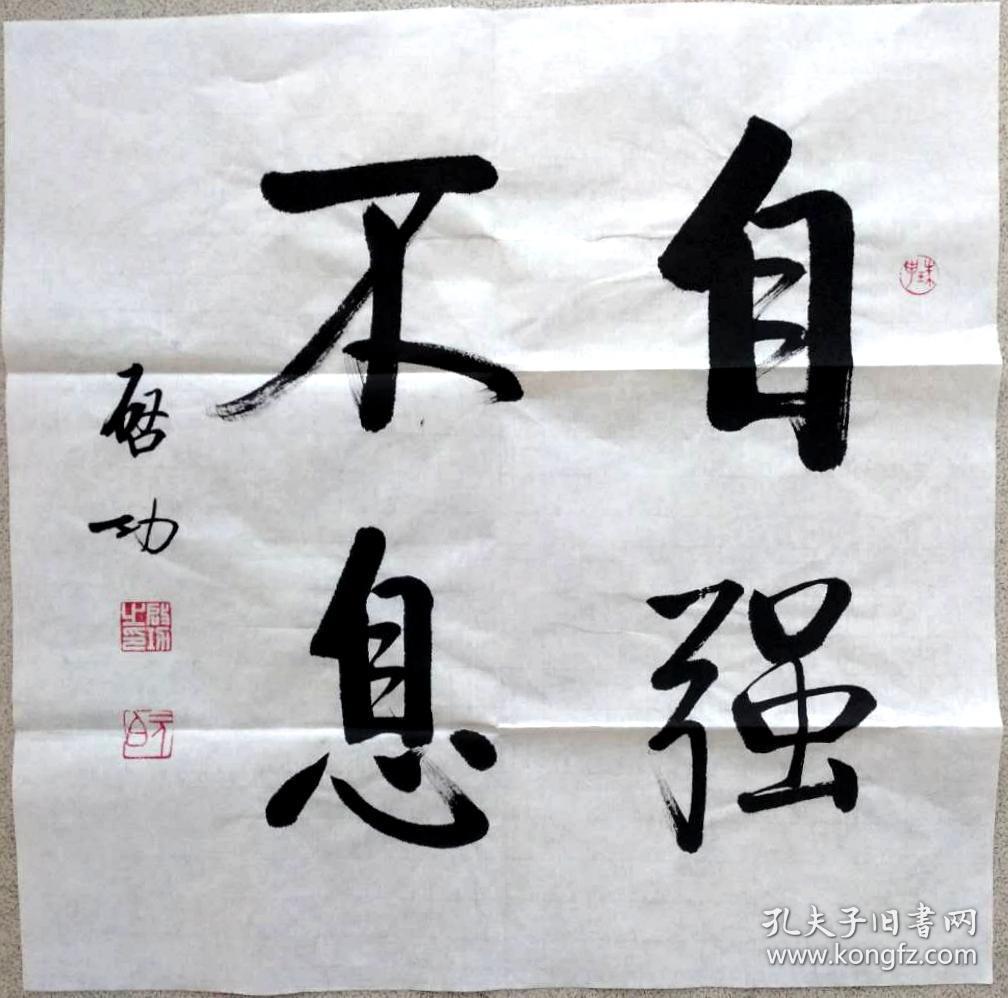 自强
不息
启功
启功之印
元白
孔夫子旧书网
www.kongfz.com